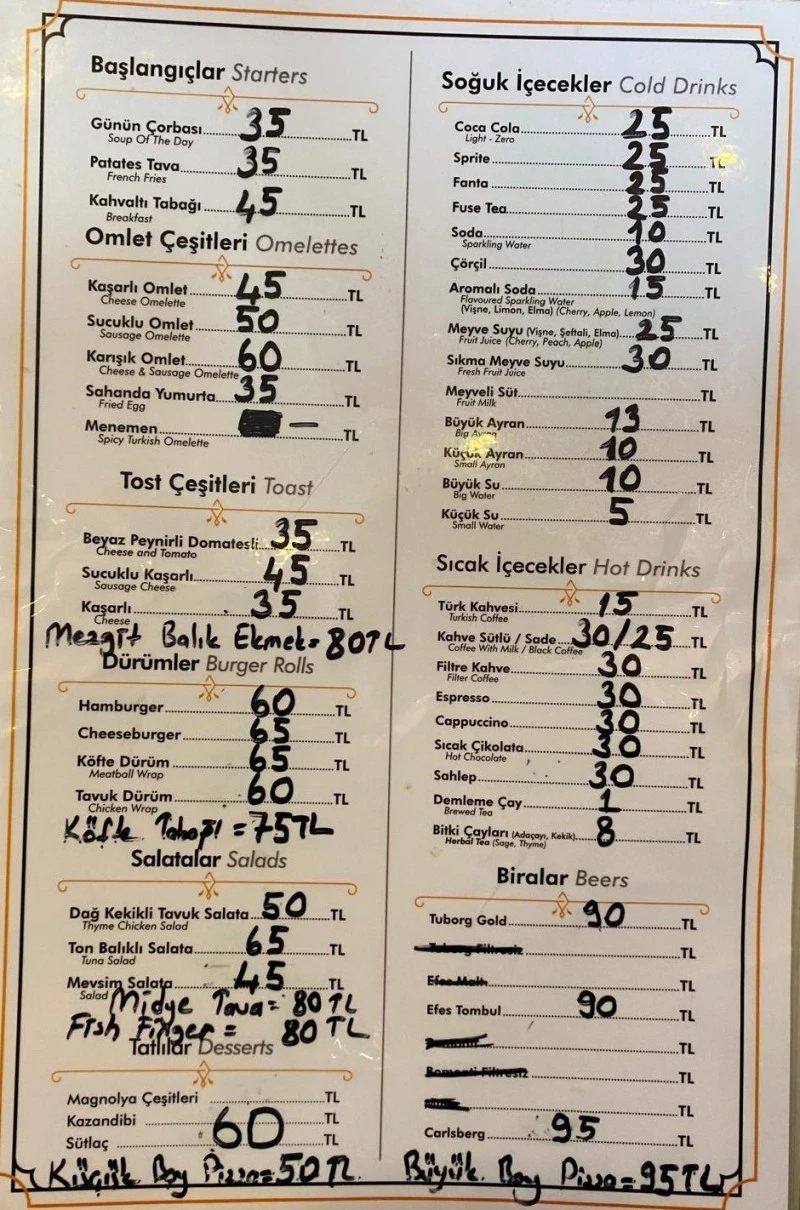 Başlangıçlar Starters
Günün Çorbası 35 TL
Soup Of The Day
Patates Tava 35 TL
French Fries
Kahvaltı Tabağı 45 TL
Breakfast
Omlet Çeşitleri Omelettes
Kaşarlı Omlet 45 TL
Cheese Omelette
Sucuklu Omlet 50 TL
Sausage Omelette
Karışık Omlet 60 TL
Cheese & Sausage Omelette
Sahanda Yumurta 35 TL
Fried Egg
Menemen — TL
Spicy Turkish Omelette
Tost Çeşitleri Toast
Beyaz Peynirli Domatesli 35 TL
Cheese and Tomato
Sucuklu Kaşarlı 45 TL
Sausage Cheese
Kaşarlı 35 TL
Cheese
Mezgit Balık Ekmek = 80TL
Dürümler Burger Rolls
Hamburger 60 TL
Cheeseburger 65 TL
Köfte Dürüm 65 TL
Meatball Wrap
Tavuk Dürüm 60 TL
Chicken Wrap
Köfte Tabağı = 75TL
Salatalar Salads
Dağ Kekikli Tavuk Salata 50 TL
Thyme Chicken Salad
Ton Balıklı Salata 65 TL
Tuna Salad
Mevsim Salata 45 TL
Salad
Midye Tava = 80 TL
Fish Finger = 80 TL
Tatlılar Desserts
Magnolya Çeşitleri TL
Kazandibi 60 TL
Sütlaç TL
Küçük Boy Pizza = 50 TL
Soğuk İçecekler Cold Drinks
Coca Cola 25 TL
Light - Zero
Sprite 25 TL
Fanta 25 TL
Fuse Tea 25 TL
Soda 10 TL
Sparkling Water
Çörçil 30 TL
Aromalı Soda 15 TL
Flavoured Sparkling Water
(Vişne, Limon, Elma) (Cherry, Apple, Lemon)
Meyve Suyu (Vişne, Şeftali, Elma) 25 TL
Fruit Juice (Cherry, Peach, Apple)
Sıkma Meyve Suyu 30 TL
Fresh Fruit Juice
Meyveli Süt TL
Fruit Milk
Büyük Ayran 13 TL
Big Ayran
Küçük Ayran 10 TL
Small Ayran
Büyük Su 10 TL
Big Water
Küçük Su 5 TL
Small Water
Sıcak İçecekler Hot Drinks
Türk Kahvesi 15 TL
Turkish Coffee
Kahve Sütlü / Sade 30/25 TL
Coffee With Milk / Black Coffee
Filtre Kahve 30 TL
Filter Coffee
Espresso 30 TL
Cappuccino 30 TL
Sıcak Çikolata 30 TL
Hot Chocolate
Sahlep 30 TL
Demleme Çay 1 TL
Brewed Tea
Bitki Çayları (Adaçayı, Kekik) 8 TL
Herbal Tea (Sage, Thyme)
Biralar Beers
Tuborg Gold 90 TL
Tuborg Filtresiz TL
Efes Malt TL
Efes Tombul 90 TL
TL
Bomonti Filtresiz TL
TL
Carlsberg 95 TL
Büyük Boy Pizza = 95 TL